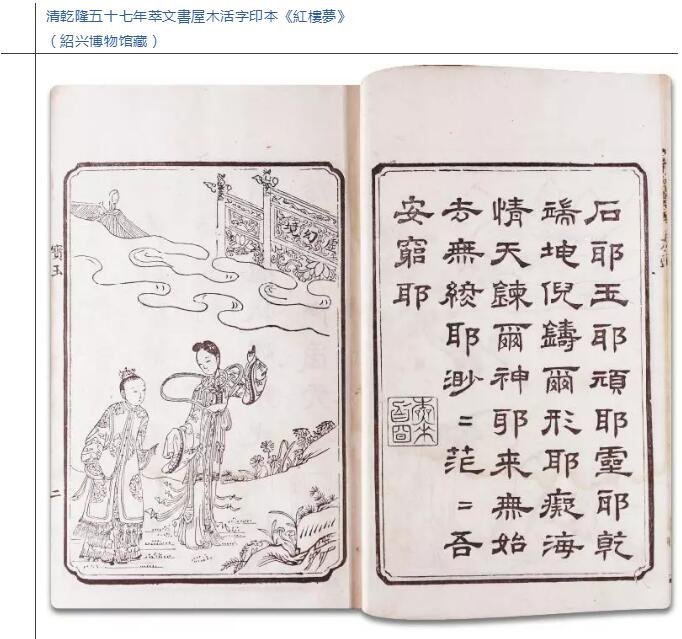 清乾隆五十七年萃文書屋木活字印本《紅樓夢》
（紹兴博物馆藏）
石耶玉耶頑耶靈耶乾
端坤倪鑄爾形耶癡海
情天鍊爾神耶来無始
去無終耶渺〻茫〻吾
安窮耶
寶玉
二